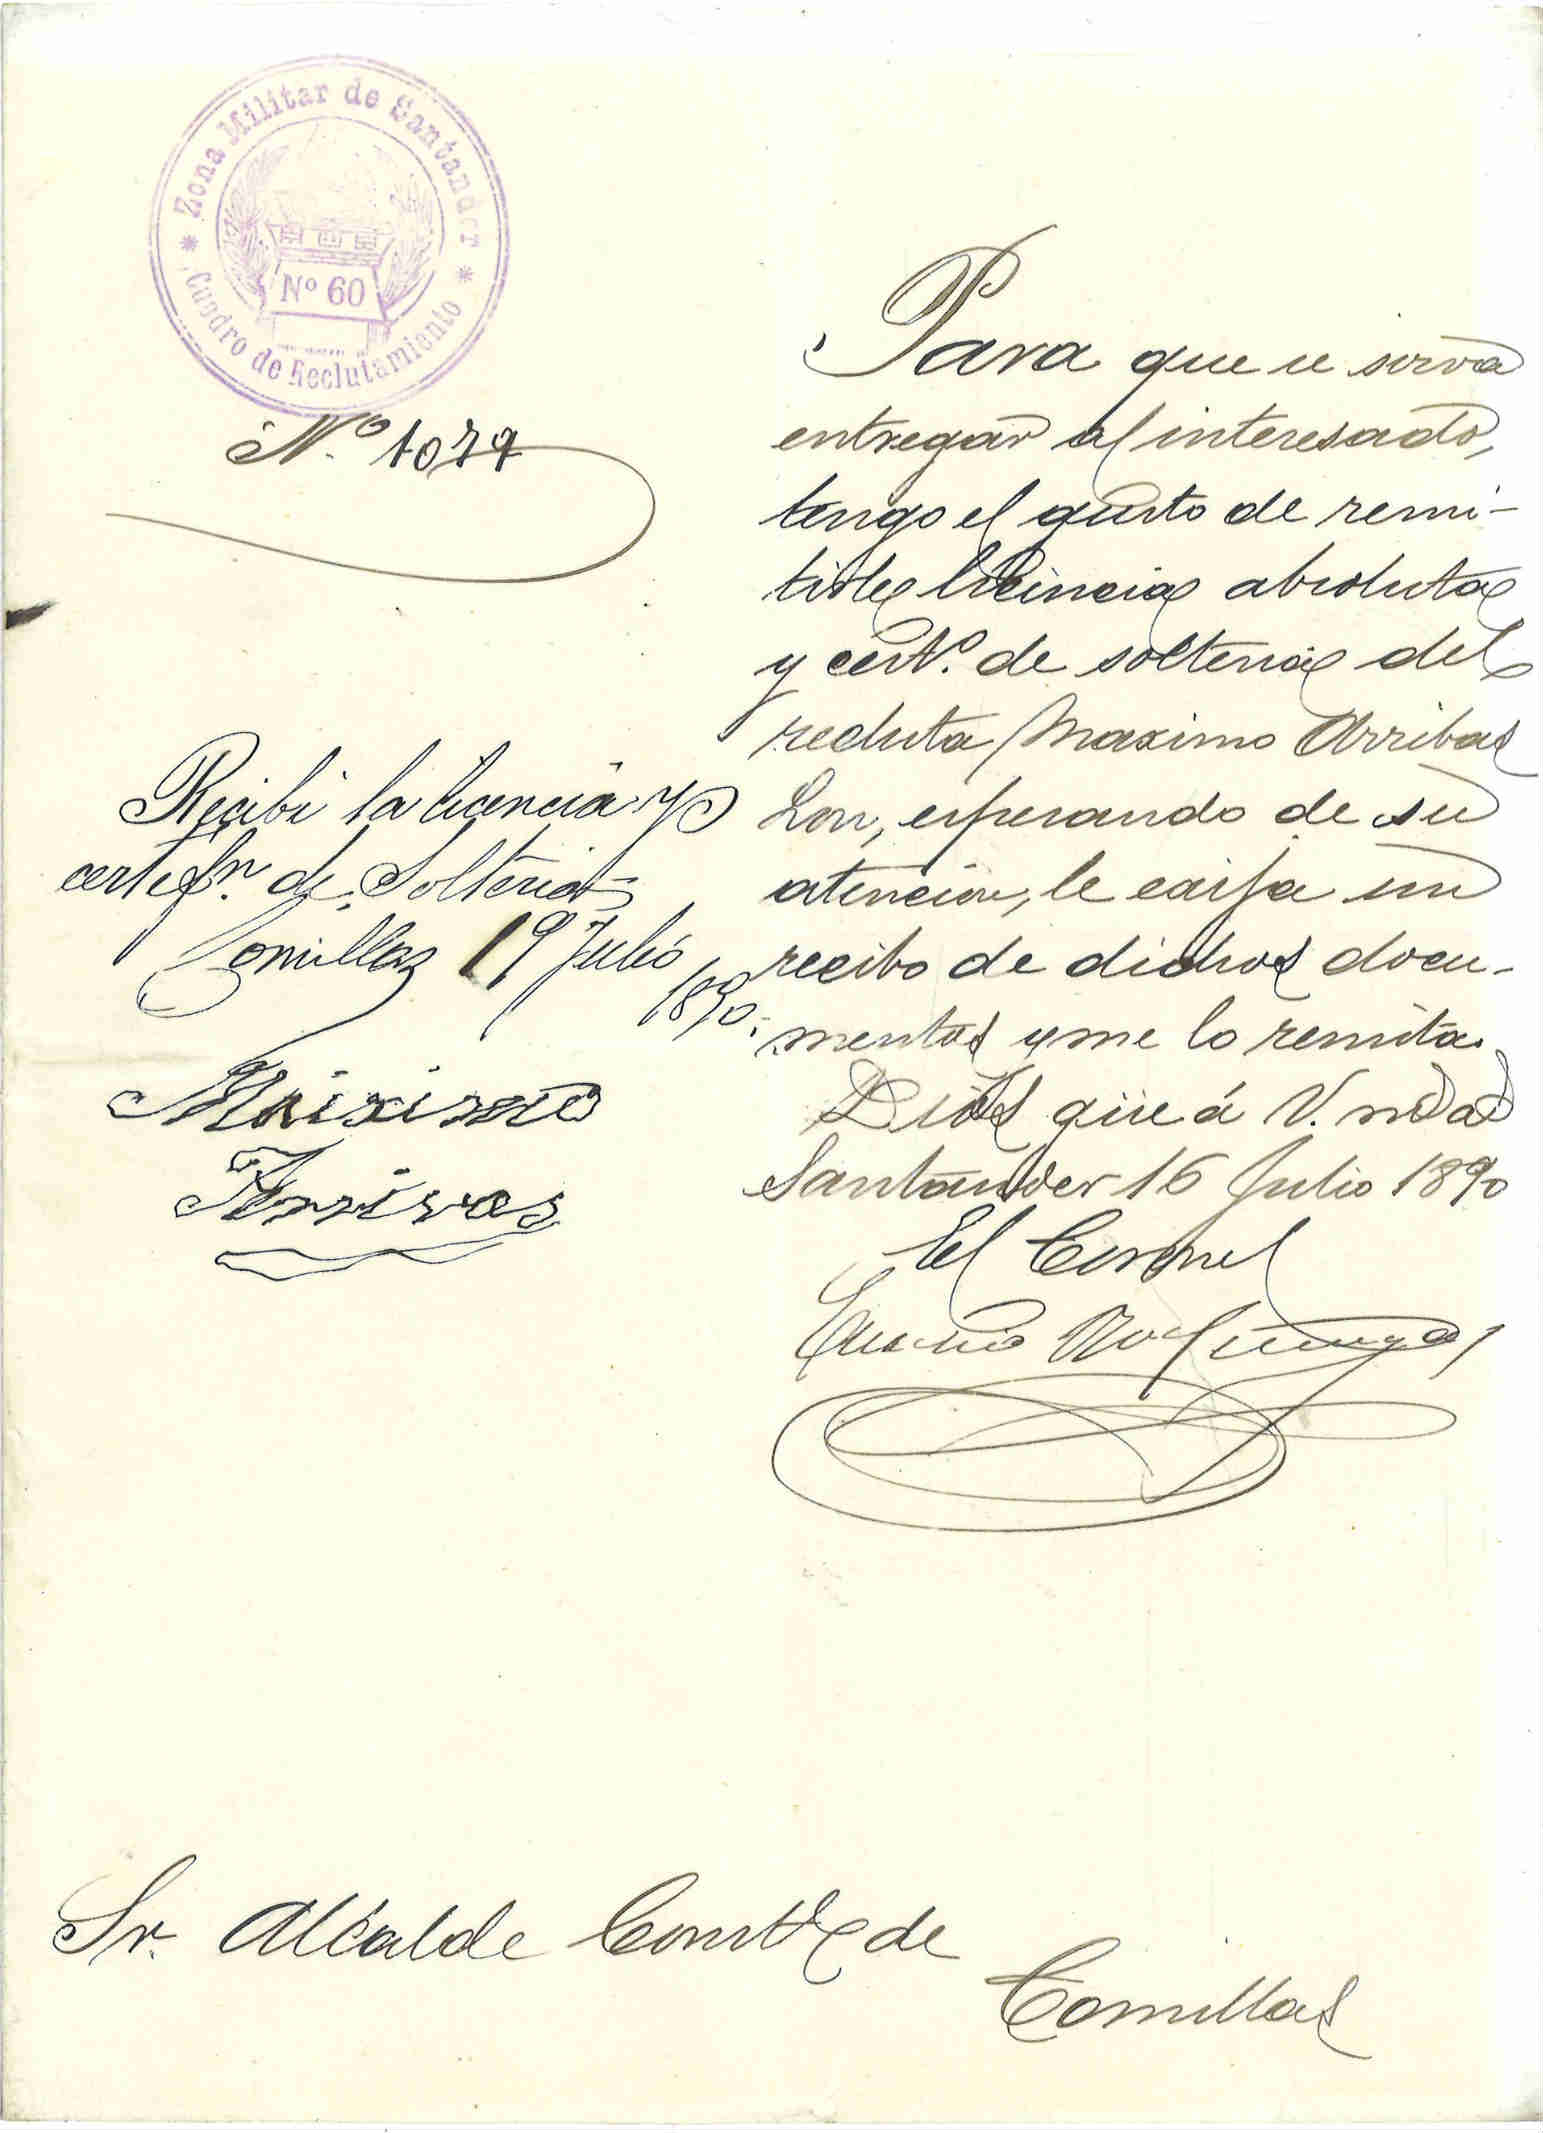 Zona Militar de Santander
Nº 60
Cuadro de Reclutamiento
Nº 1079
Para que se sirva
entregar al interesado,
tengo el gusto de remi-
tirle licencia absoluta
y certº. de solteria del
recluta Maximo Arribas
esperando de su
atencion, le exija un
recibo de dichos docu-
mentos y me lo remita.
Dios gue á V. m.s a.s
Santander 16 Julio 1890
El Coronel
Recibi la licencia y
certefn. de Solteria
Comillas 19 Julio
1890.
Maiximo
Arrivas
Sr. Alcalde Constl de
Comillas